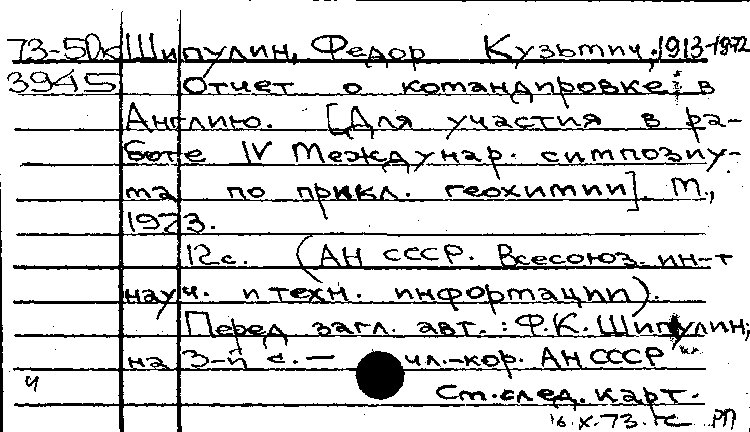 73-50к Шипулин, Федор Кузьмич, 1913-1972
3945 Отчет о командировке в
Англию. [Для участия в ра-
боте IV Междунар. симпозиу-
ма по прикл. геохимии]. М.,
1973.
12с. (АН СССР. Всесоюз. ин-т
науч. и техн. информации).
Перед загл. авт.: Ф.К. Шипулин,
на 3-й с. — чл.-кор. АН СССР
ч См. след. карт.
16.X.73. РП